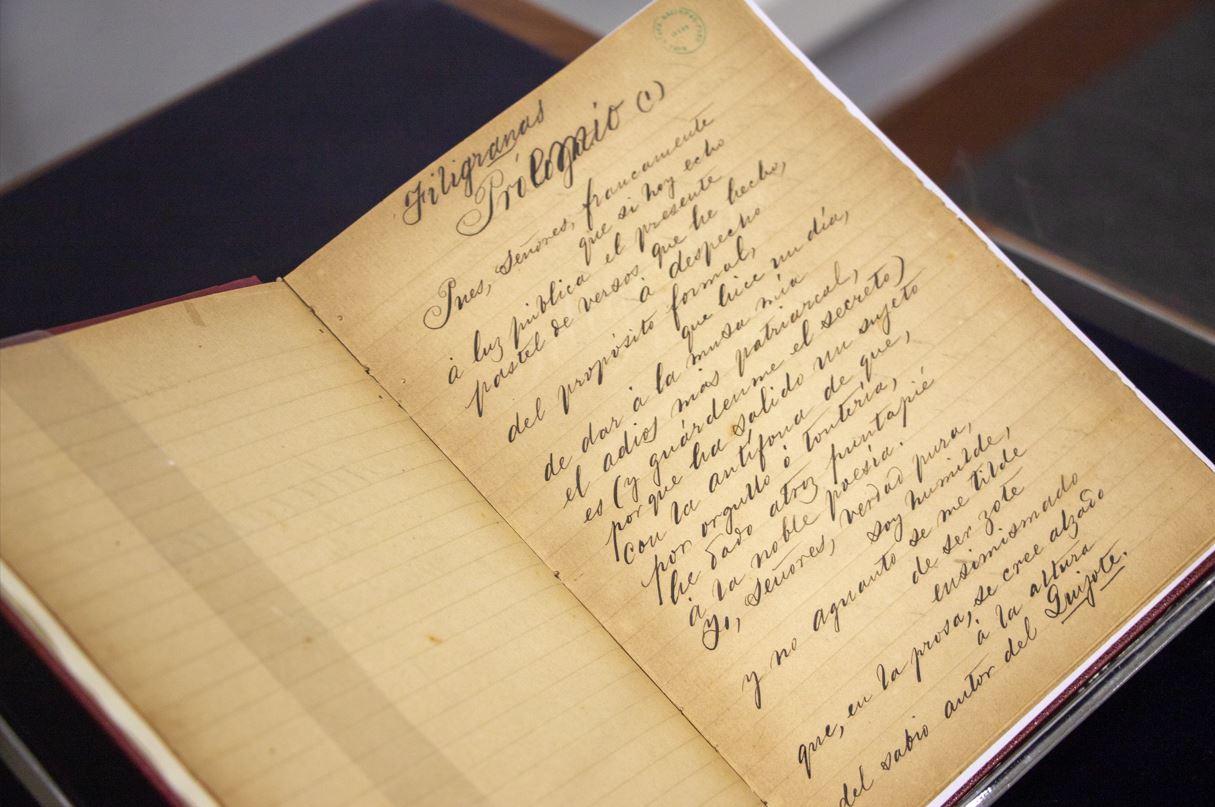 Filigranas
(1)
Pues, señores, francamente
que si hoy echo
à luz pública el presente
pastel de versos que he hecho,
à despecho
del propósito formal,
que hice un día,
de dar à la musa mía
el adios mas patriarcal,
es (y guárdenme el secreto)
porque ha salido un sujeto
con la antífona de que,
por orgullo ò tontería,
he dado atroz puntapié
à la noble poesía.
Yo, señores, verdad pura,
soy humilde,
y no aguanto se me tilde
de ser zote
ensimismado
que, en la prosa, se cree alzado
à la altura
del sabio autor del Quijote.